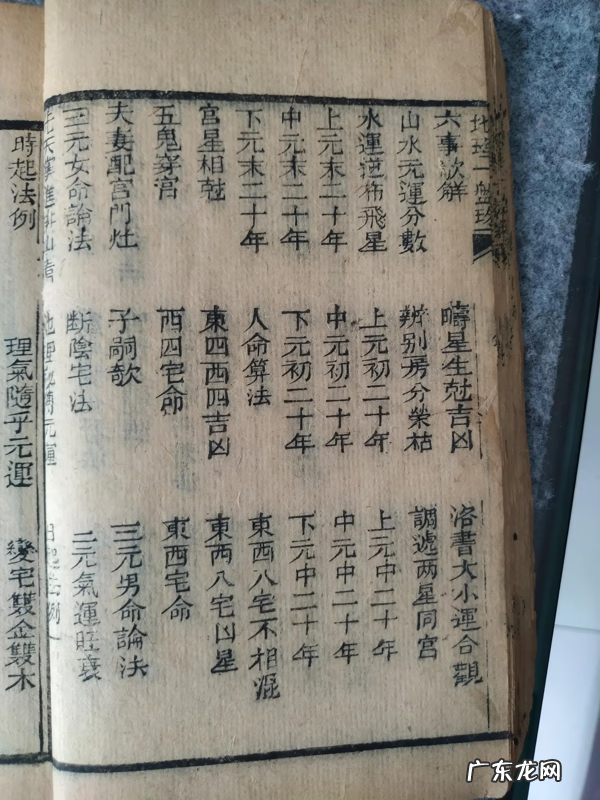 地理一盤珠
六事欵解 疇星生尅吉凶 洛書大小運合觀
山水元運分數 辨别房分榮枯 調遞两星同宫
水運逆佈飛星 上元初二十年 上元中二十年
上元末二十年 中元初二十年 中元中二十年
中元末二十年 下元初二十年 下元中二十年
下元末二十年 人命算法 東西八宅不相混
宫星相尅 東四西四吉凶 東西八宅凶星
五鬼穿宫 西四宅命 東西宅命
夫妻配宫門灶 子嗣欹 三元男命論法
三元女命論法 断陰宅法 三元氣運旺衰
地理 元運 日起法例
時起法例 理氣隨乎元運 變宅雙金雙木
广东龙网